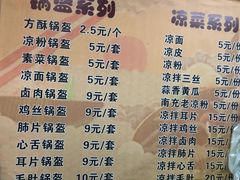 锅盔系列
方酥锅盔 2.5元/个
凉粉锅盔 5元/套
素菜锅盔 5元/套
凉面锅盔 5元/套
卤肉锅盔 9元/套
鸡丝锅盔 9元/套
肺片锅盔 9元/套
心舌锅盔 9元/套
耳片锅盔 9元/套
毛肚锅盔 10元/套
凉菜系列
凉面 5元/
凉皮 5元/
凉粉 5元/
凉拌三丝 5元/
蒜香黄瓜 5元/
南充老凉粉 5元/
凉拌鸡丝 15元/
凉拌卤肉 15元/
凉拌肺片 15元/
凉拌心舌 15元/
凉拌耳片 15元/
凉拌毛肚 20元/